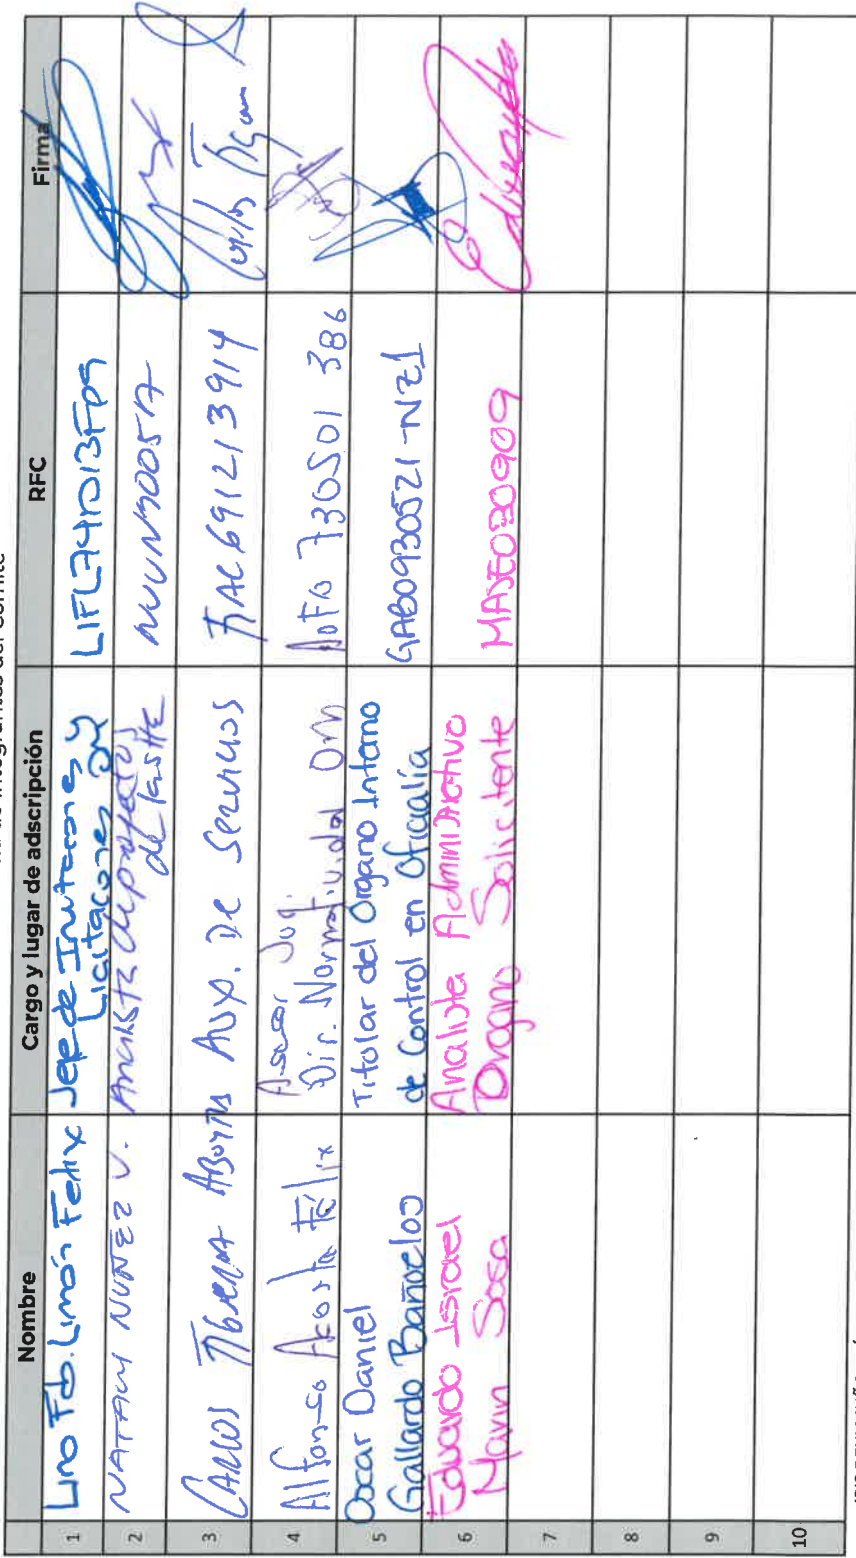 de integrantes del Comité
Nombre Cargo y lugar de adscripción RFC Firma
1 Lino Fco. Limón Felix Jefe de Invitaciones y
Licitaciones LIFL741013FD9
2 NATALY NUÑEZ V. Analista de proyectos
de la SHE
3 CARLOS Aux. De Servicios 691213914
4 Alfonso Acosta Félix Asesor Jug.
Dir. Normatividad OM AOFA 730501 386
5 Oscar Daniel
Gallardo Bañuelos Titular del Organo Interno
de Control en Oficialía GABO930521-NZ1
6 Eduardo Israel
Marin Sosa Analista Administrativo
Organo Solicitante MASE030909
7
8
9
10